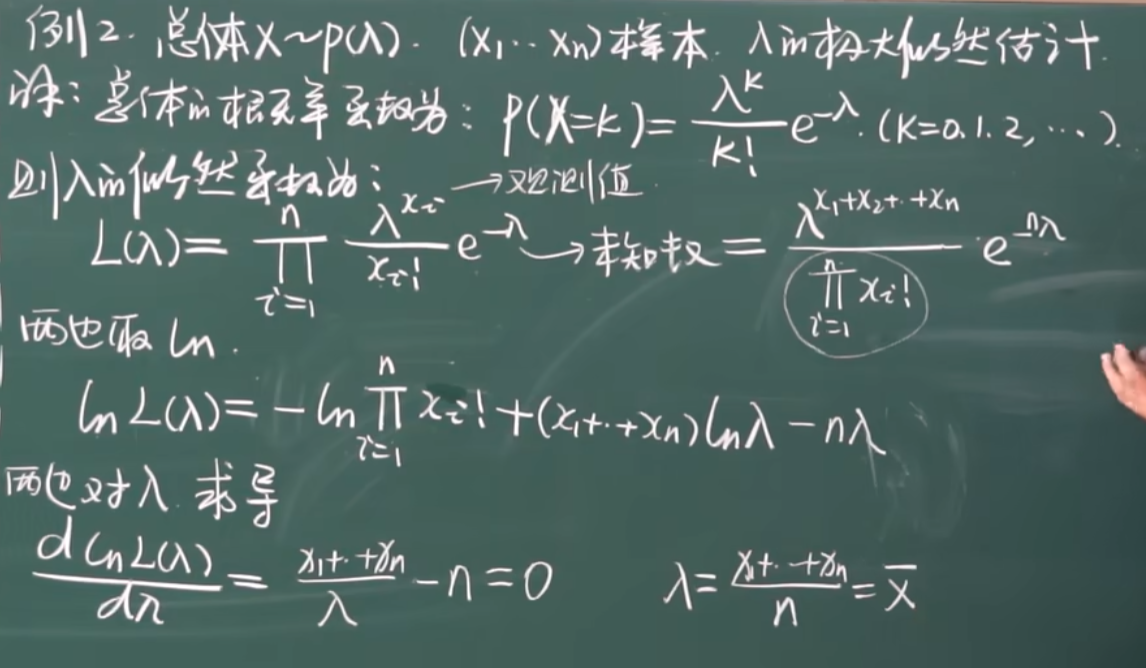 例2. 总体X~P(λ). (X₁…Xn)样本. λ的极大似然估计.
解: 总体的概率函数为: P(X=K)= λ^K/K! e^{-λ}. (K=0.1.2,…).
则λ的似然函数为: →观测值
L(λ)= ∏_{i=1}^{n} λ^{x_i}/x_i! e^{-λ} →未知数 = λ^{x₁+x₂+‥+xn}/∏_{i=1}^{n} x_i! · e^{-nλ}
两边取ln.
lnL(λ)= -ln∏_{i=1}^{n} x_i! +(x₁+‥+xn)lnλ -nλ
两边对λ.求导
d lnL(λ)/dλ = x₁+‥+xn/λ -n=0 λ= x₁+‥+xn/n = x̄